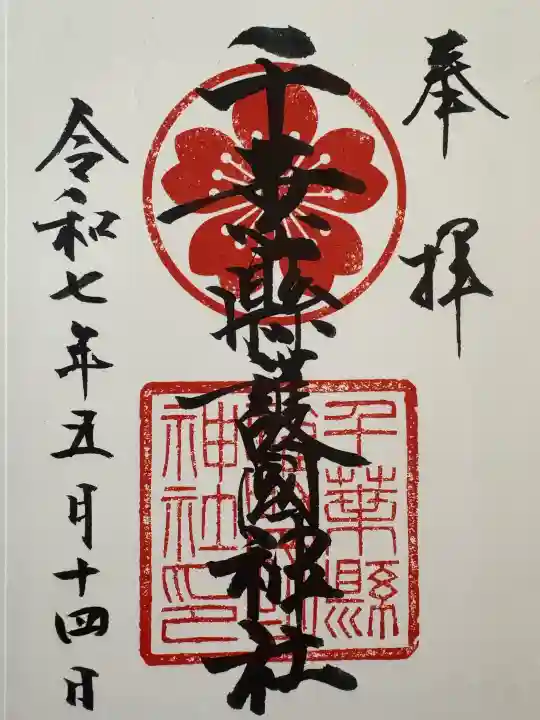 奉拝
千葉縣護國神社
千葉縣
護國
神社印
令和七年五月十四日